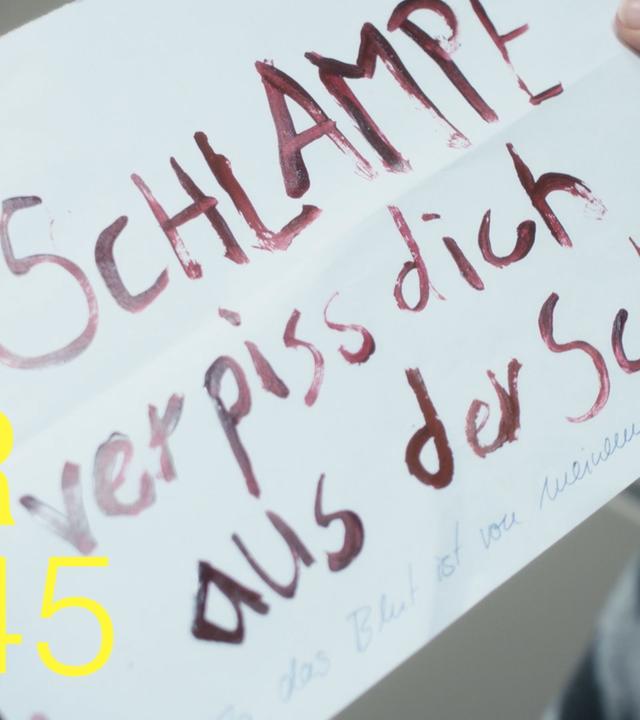 SCHLAMPE
verpiss dich
aus der Sc
das Blut ist von meinem
R
45